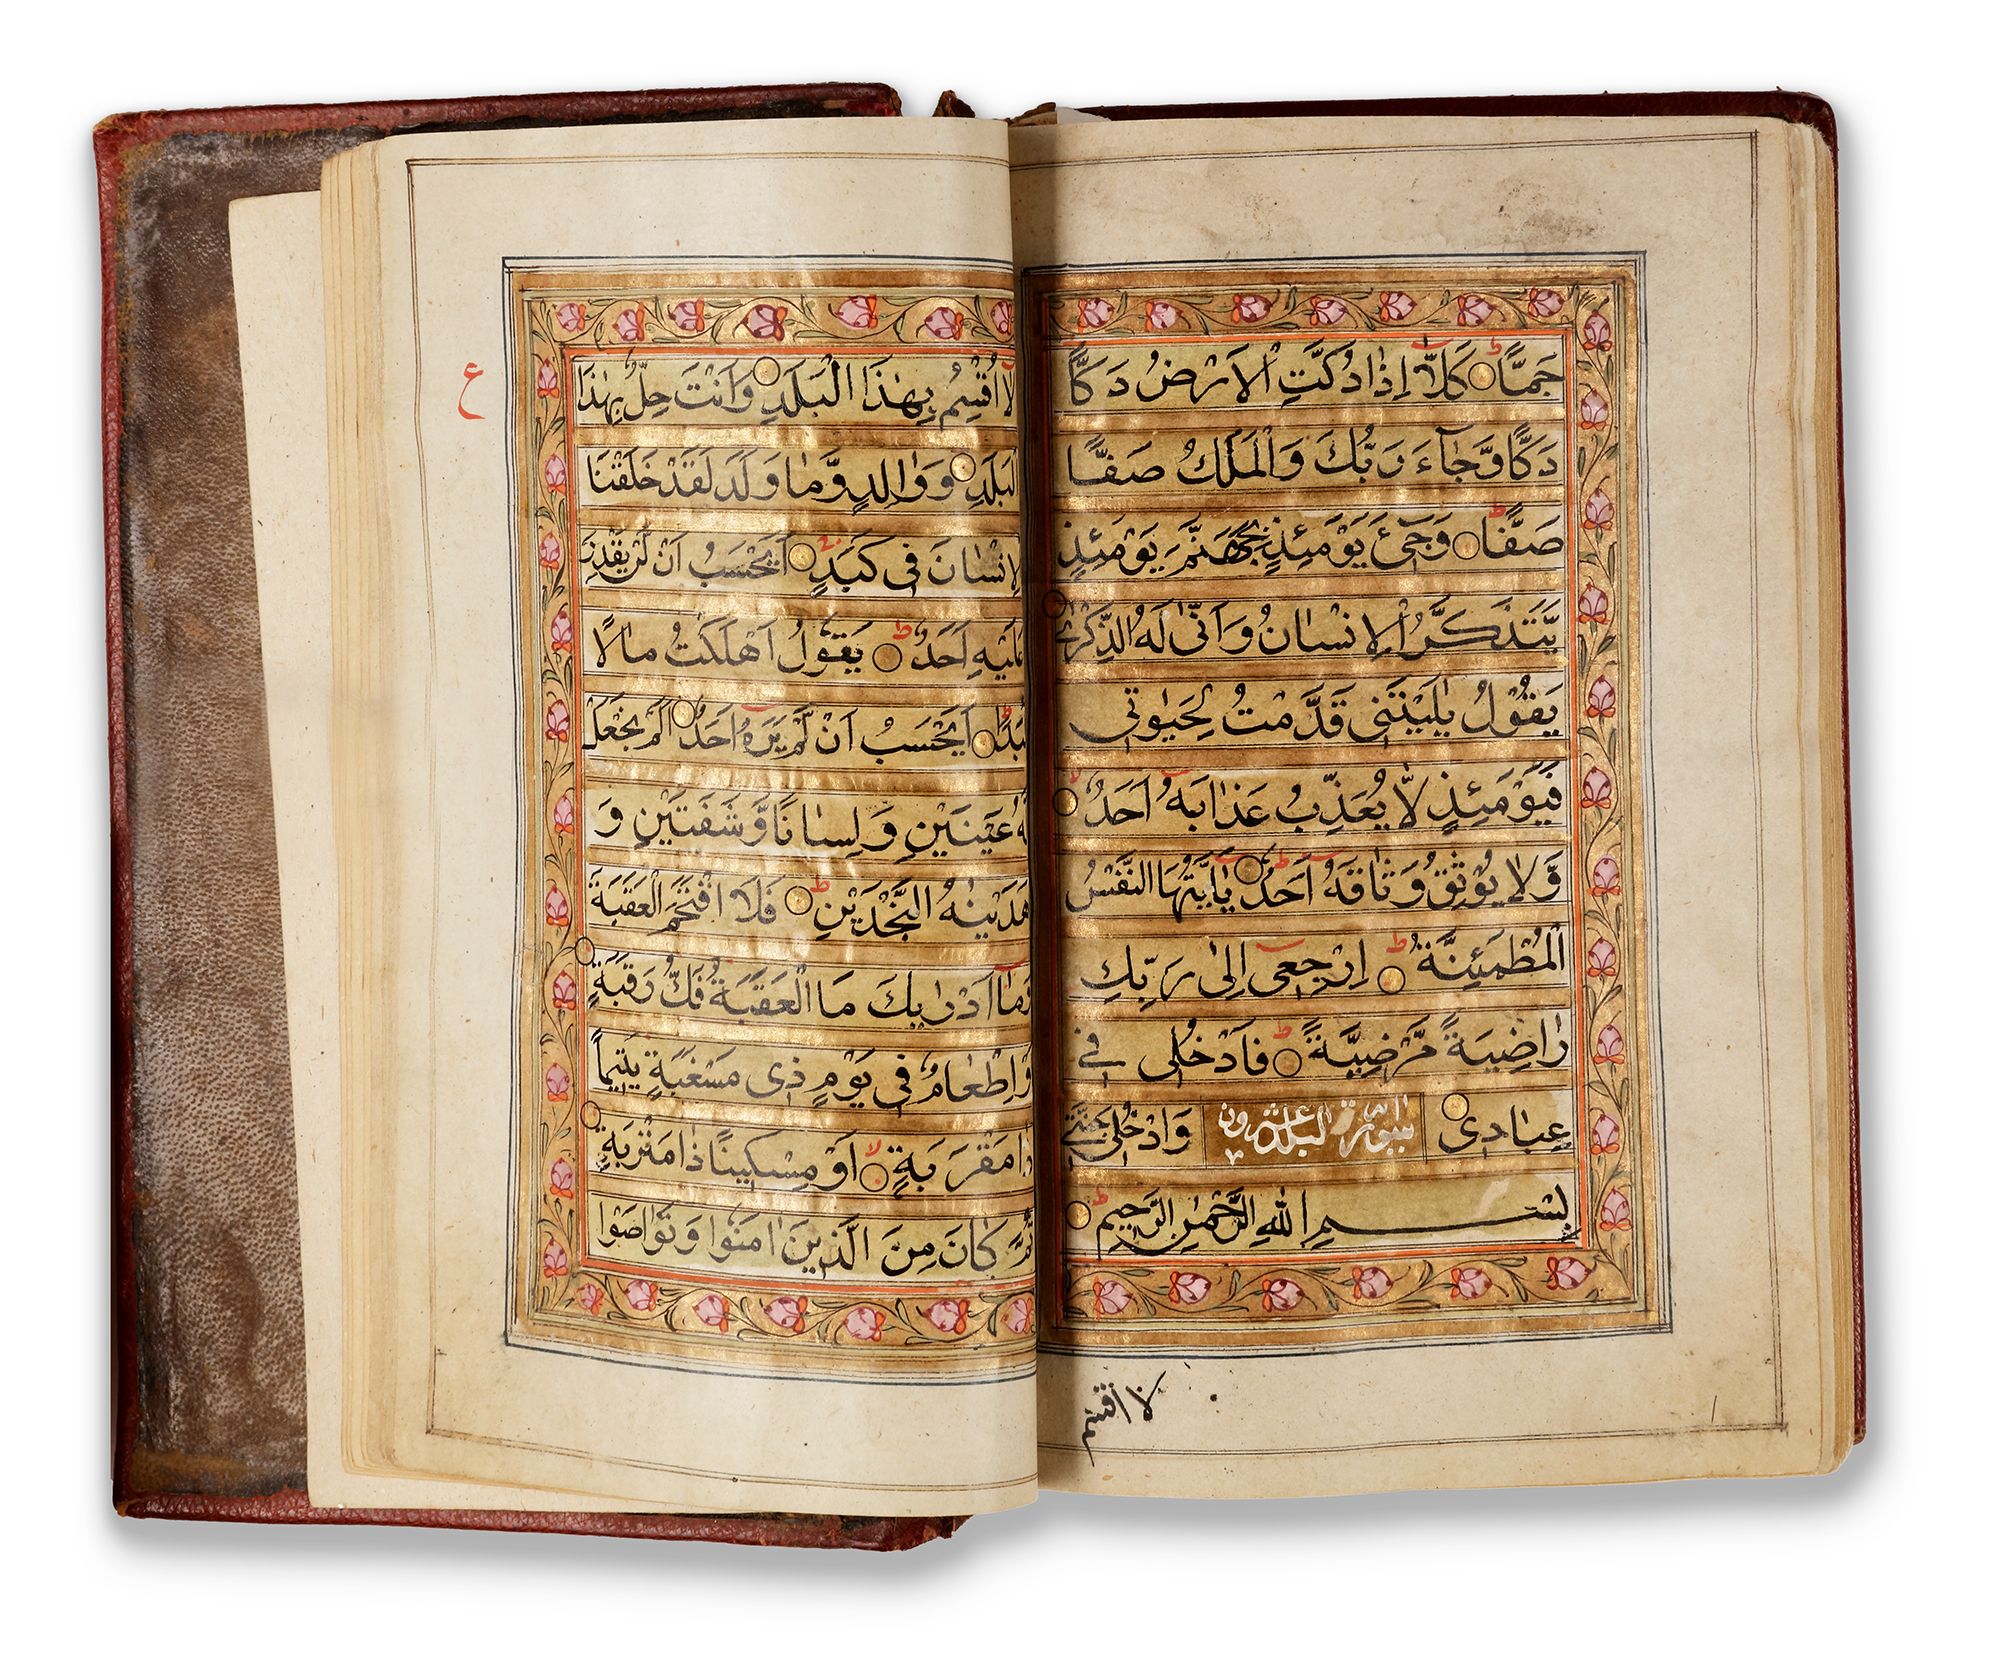 جَمًّا ط كَلَّآ اِذَا دُكَّتِ الْاَرْضُ دَكًّا
دَكًّا وَّجَآءَ رَبُّكَ وَالْمَلَكُ صَفًّا
صَفًّا ط وَجِيْٓءَ يَوْمَئِذٍ بِجَهَنَّمَ يَوْمَئِذٍ
يَّتَذَكَّرُ الْاِنْسَانُ وَاَنّٰى لَهُ الذِّكْرٰى
يَقُوْلُ يٰلَيْتَنِىْ قَدَّمْتُ لِحَيٰوتِىْ
فَيَوْمَئِذٍ لَّا يُعَذِّبُ عَذَابَهٗٓ اَحَدٌ لا
وَّلَا يُوْثِقُ وَثَاقَهٗٓ اَحَدٌ ط يٰٓاَيَّتُهَا النَّفْسُ
الْمُطْمَئِنَّةُ ط اِرْجِعِىْٓ اِلٰى رَبِّكِ
رَاضِيَةً مَّرْضِيَّةً ط فَادْخُلِىْ فِىْ
عِبَادِىْ وَادْخُلِىْ جَنَّتِىْ
سورة البلد عشرون
بِسْمِ اللهِ الرَّحْمٰنِ الرَّحِيْمِ ط
لا اقسم
ع
لَآ اُقْسِمُ بِهٰذَا الْبَلَدِ وَاَنْتَ حِلٌّۢ بِهٰذَا
الْبَلَدِ وَوَالِدٍ وَّمَا وَلَدَ لَقَدْ خَلَقْنَا
الْاِنْسَانَ فِىْ كَبَدٍ اَيَحْسَبُ اَنْ لَّنْ يَّقْدِرَ
عَلَيْهِ اَحَدٌ ط يَقُوْلُ اَهْلَكْتُ مَالًا
لُّبَدًا ط اَيَحْسَبُ اَنْ لَّمْ يَرَهٗٓ اَحَدٌ اَلَمْ نَجْعَلْ
لَّهٗ عَيْنَيْنِ وَلِسَانًا وَّشَفَتَيْنِ وَ
هَدَيْنٰهُ النَّجْدَيْنِ ط فَلَا اقْتَحَمَ الْعَقَبَةَ
وَمَآ اَدْرٰىكَ مَا الْعَقَبَةُ فَكُّ رَقَبَةٍ
وْ اِطْعَامٌ فِىْ يَوْمٍ ذِىْ مَسْغَبَةٍ يَّتِيْمًا
ذَا مَقْرَبَةٍ لا اَوْ مِسْكِيْنًا ذَا مَتْرَبَةٍ
ثُمَّ كَانَ مِنَ الَّذِيْنَ اٰمَنُوْا وَتَوَاصَوْا